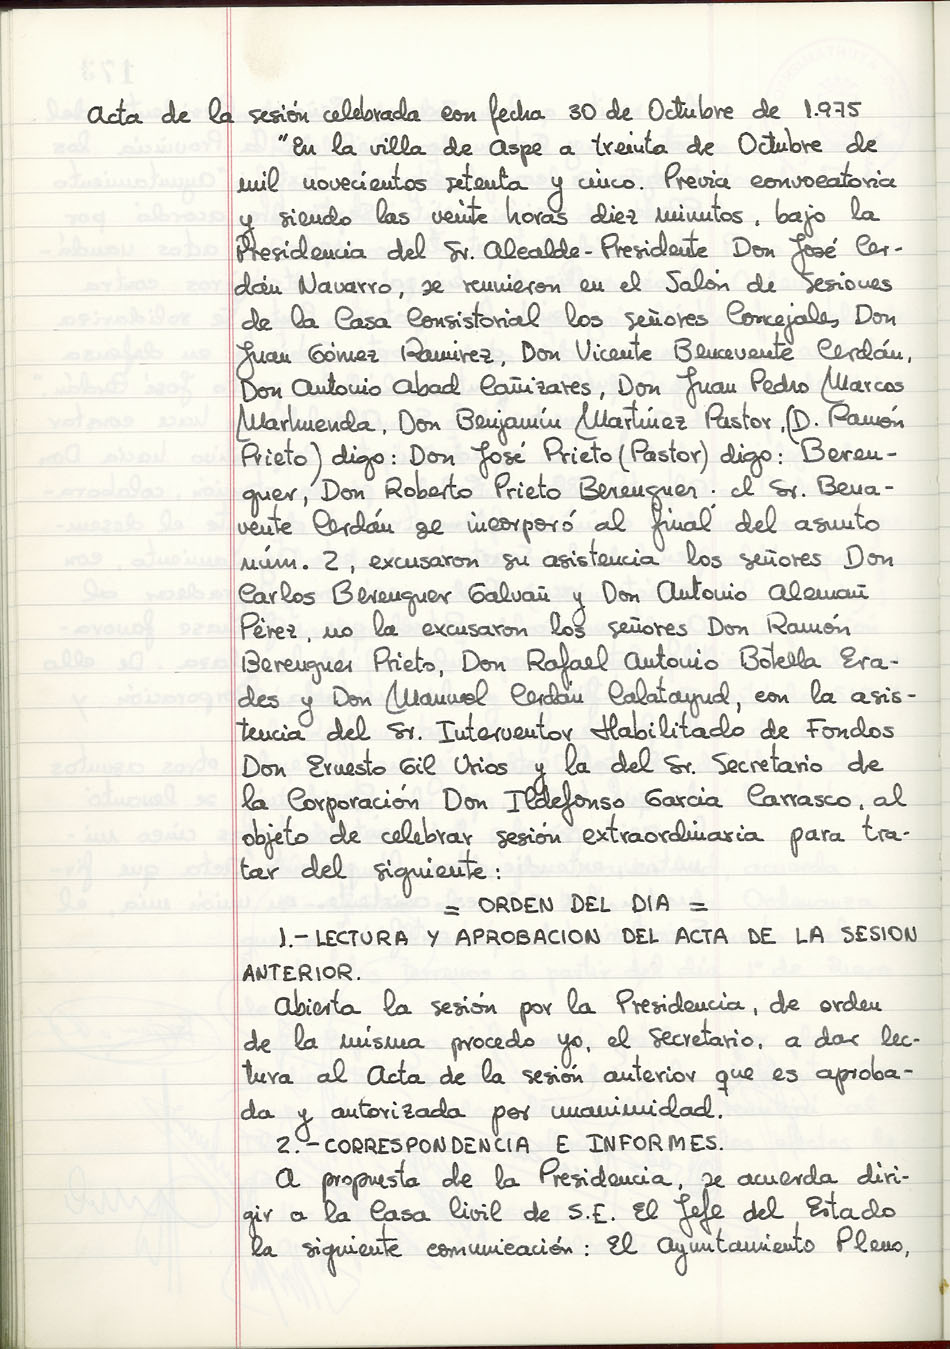 Acta de la sesión celebrada con fecha 30 de Octubre de 1.975
"En la villa de Aspe a treinta de Octubre de
mil novecientos setenta y cinco. Previa convocatoria
y siendo las veinte horas diez minutos, bajo la
Presidencia del Sr. Alcalde-Presidente Don José Cer-
dán Navarro, se reunieron en el Salón de Sesiones
de la Casa Consistorial los señores Concejales, Don
Juan Gómez Ramirez, Don Vicente Benavente Cerdán,
Don Antonio Abad Cañizares, Don Juan Pedro Marcos
Marhuenda, Don Benjamín Martínez Pastor, (D. Ramón
Prieto) digo: Don José Prieto (Pastor) digo: Beren-
guer, Don Roberto Prieto Berenguer. el Sr. Bena-
vente Cerdán se incorporó al final del asunto
núm. 2, excusaron su asistencia los señores Don
Carlos Berenguer Galvañ y Don Antonio Alemañ
Pérez, no la excusaron los señores Don Ramón
Berenguer Prieto, Don Rafael Antonio Botella Era-
des y Don Manuel Cerdán Calatayud, con la asis-
tencia del Sr. Interventor Habilitado de Fondos
Don Ernesto Gil Urios y la del Sr. Secretario de
la Corporación Don Ildefonso Garcia Carrasco, al
objeto de celebrar sesión extraordinaria para tra-
tar del siguiente:
= ORDEN DEL DIA =
1.- LECTURA Y APROBACION DEL ACTA DE LA SESION
ANTERIOR.
Abierta la sesión por la Presidencia, de orden
de la misma procedo yo, el Secretario, a dar lec-
tura al Acta de la sesión anterior que es aproba-
da y autorizada por unanimidad.
2.- CORRESPONDENCIA E INFORMES.
A propuesta de la Presidencia, se acuerda diri-
gir a la Casa Civil de S.E. El Jefe del Estado
la siguiente comunicación: El Ayuntamiento Pleno,